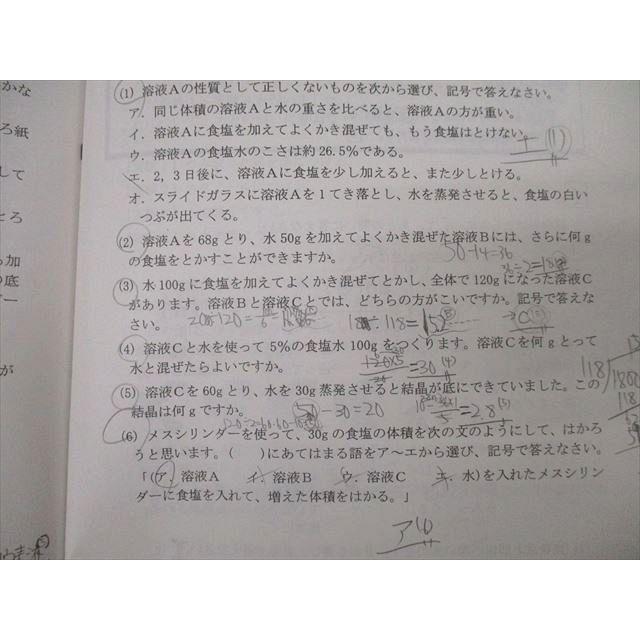 かな
ろ紙
して
とろ
加
の底
が
(1) 溶液Aの性質として正しくないものを次から選び、記号で答えなさい。
ア．同じ体積の溶液Aと水の重さを比べると、溶液Aの方が重い。
イ．溶液Aに食塩を加えてよくかき混ぜても、もう食塩はとけない。
ウ．溶液Aの食塩水のこさは約26.5%である。
エ．2，3日後に、溶液Aに食塩を少し加えると、また少しとける。
オ．スライドガラスに溶液Aを1てき落とし、水を蒸発させると、食塩の白い
つぶが出てくる。
(2) 溶液Aを68gとり、水50gを加えてよくかき混ぜた溶液Bには、さらに何g
の食塩をとかすことができますか。
50-14=36
36÷2=18g
(3) 水100gに食塩を加えてよくかき混ぜてとかし、全体で120gになった溶液C
があります。溶液Bと溶液Cとでは、どちらの方がこいですか。記号で答えな
さい。
(4) 溶液Cと水を使って5%の食塩水100gをつくります。溶液Cを何gとって
水と混ぜたらよいですか。
=30
(5) 溶液Cを60gとり、水を30g蒸発させると結晶が底にできていました。この
結晶は何gですか。
50-30=20
=2.8
118
1800
118
(6) メスシリンダーを使って、30gの食塩の体積を次の文のようにして、はかろ
うと思います。(　)にあてはまる語をア～エから選び、記号で答えなさい。
「(ア．溶液A　イ．溶液B　ウ．溶液C　エ．水)を入れたメスシリン
ダーに食塩を入れて、増えた体積をはかる。」
ア